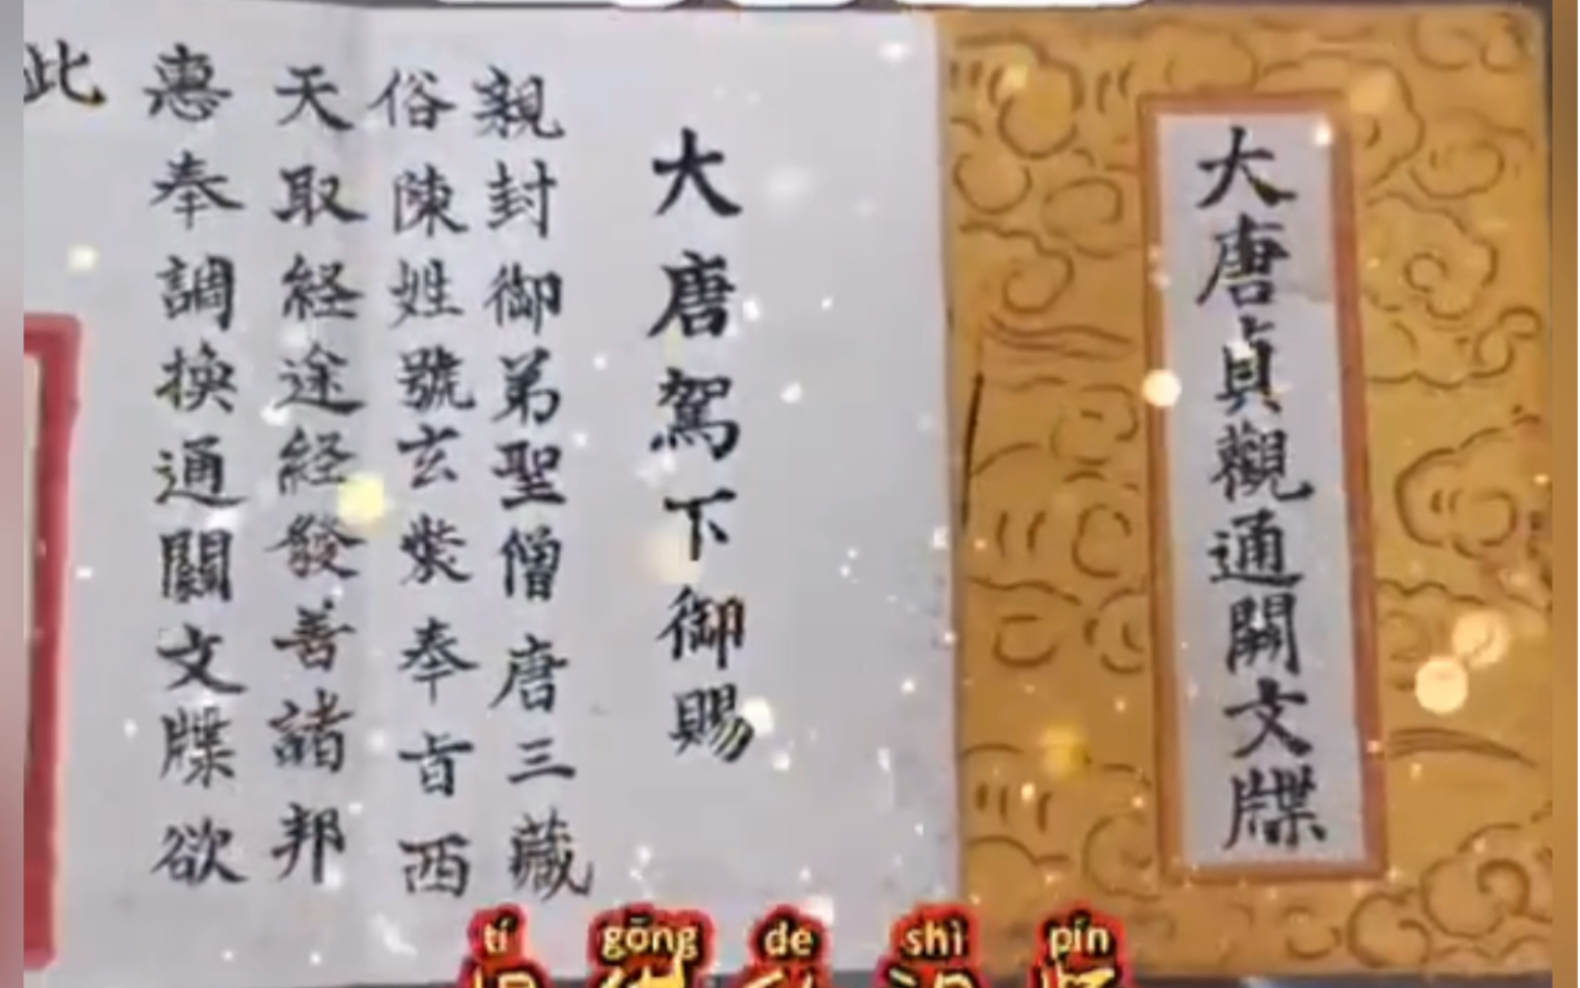 大唐貞觀通關文牒
大唐駕下御賜
親封御弟聖僧唐三藏
俗陳姓號玄奘奉旨西
天取経途経發善諸邦
惠奉調換通關文牒欲
此
tí gōng de shì pín